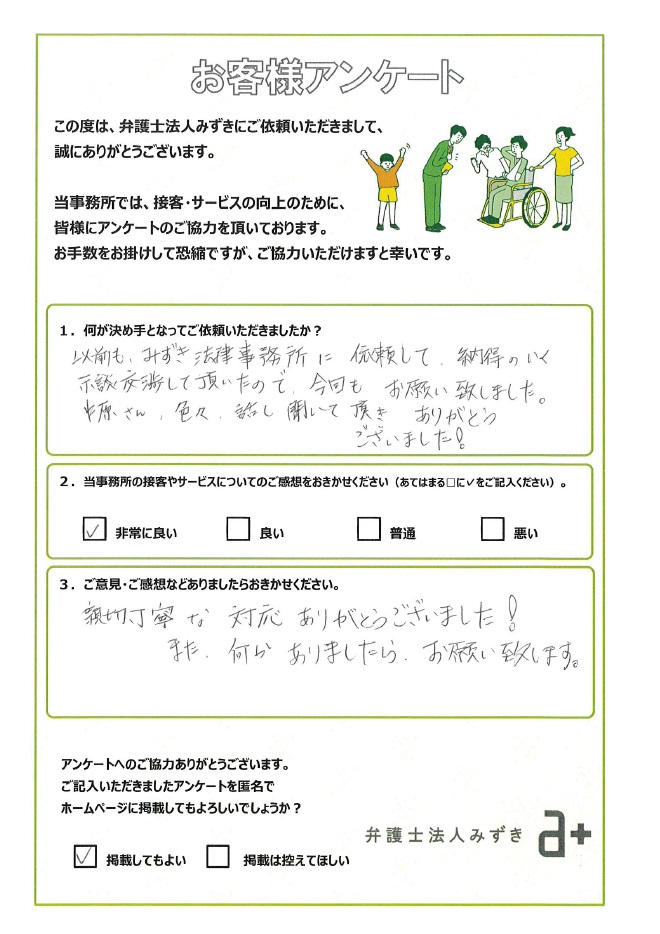 お客様アンケート
この度は、弁護士法人みずきにご依頼いただきまして、
誠にありがとうございます。
当事務所では、接客・サービスの向上のために、
皆様にアンケートのご協力を頂いております。
お手数をお掛けして恐縮ですが、ご協力いただけますと幸いです。
1．何が決め手となってご依頼いただきましたか？
以前も、みずき法律事務所に 依頼して、納得のいく
示談交渉して頂いたので、今回も お願い致しました。
中原さん、色々、話し聞いて頂き ありがとう
ございました！
2．当事務所の接客やサービスについてのご感想をおきかせください（あてはまる□に✓をご記入ください）。
✓ 非常に良い □ 良い □ 普通 □ 悪い
3．ご意見・ご感想などありましたらおきかせください。
親切丁寧な 対応 ありがとうございました！
また、何か ありましたら、お願い致します。
アンケートへのご協力ありがとうございます。
ご記入いただきましたアンケートを匿名で
ホームページに掲載してもよろしいでしょうか？
弁護士法人みずき a+
✓ 掲載してもよい □ 掲載は控えてほしい